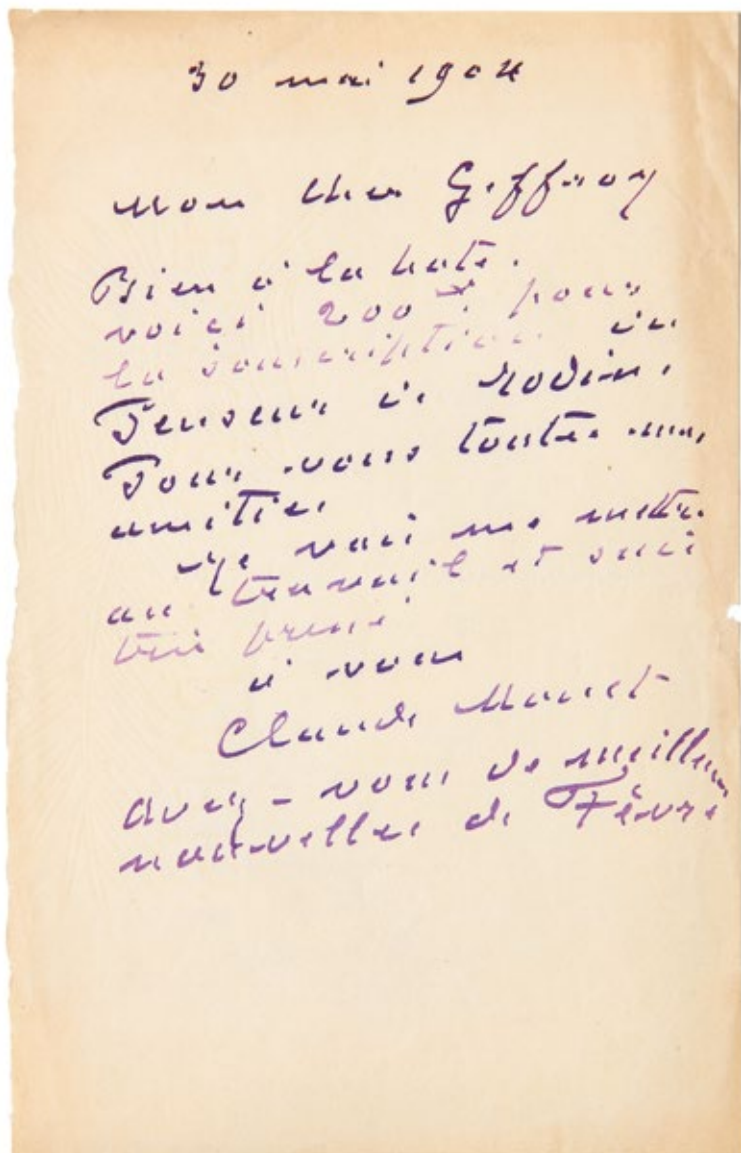 30 mai 1904
Mon cher Geffroy
Bien à la hate.
voici 200 f pour
la souscription du
Penseur de Rodin.
Pour vous toute mon
amitié
Je vais me mettre
au travail et suis
très pressé
à vous
Claude Monet
avez-vous de meilleures
nouvelles de Fèvre